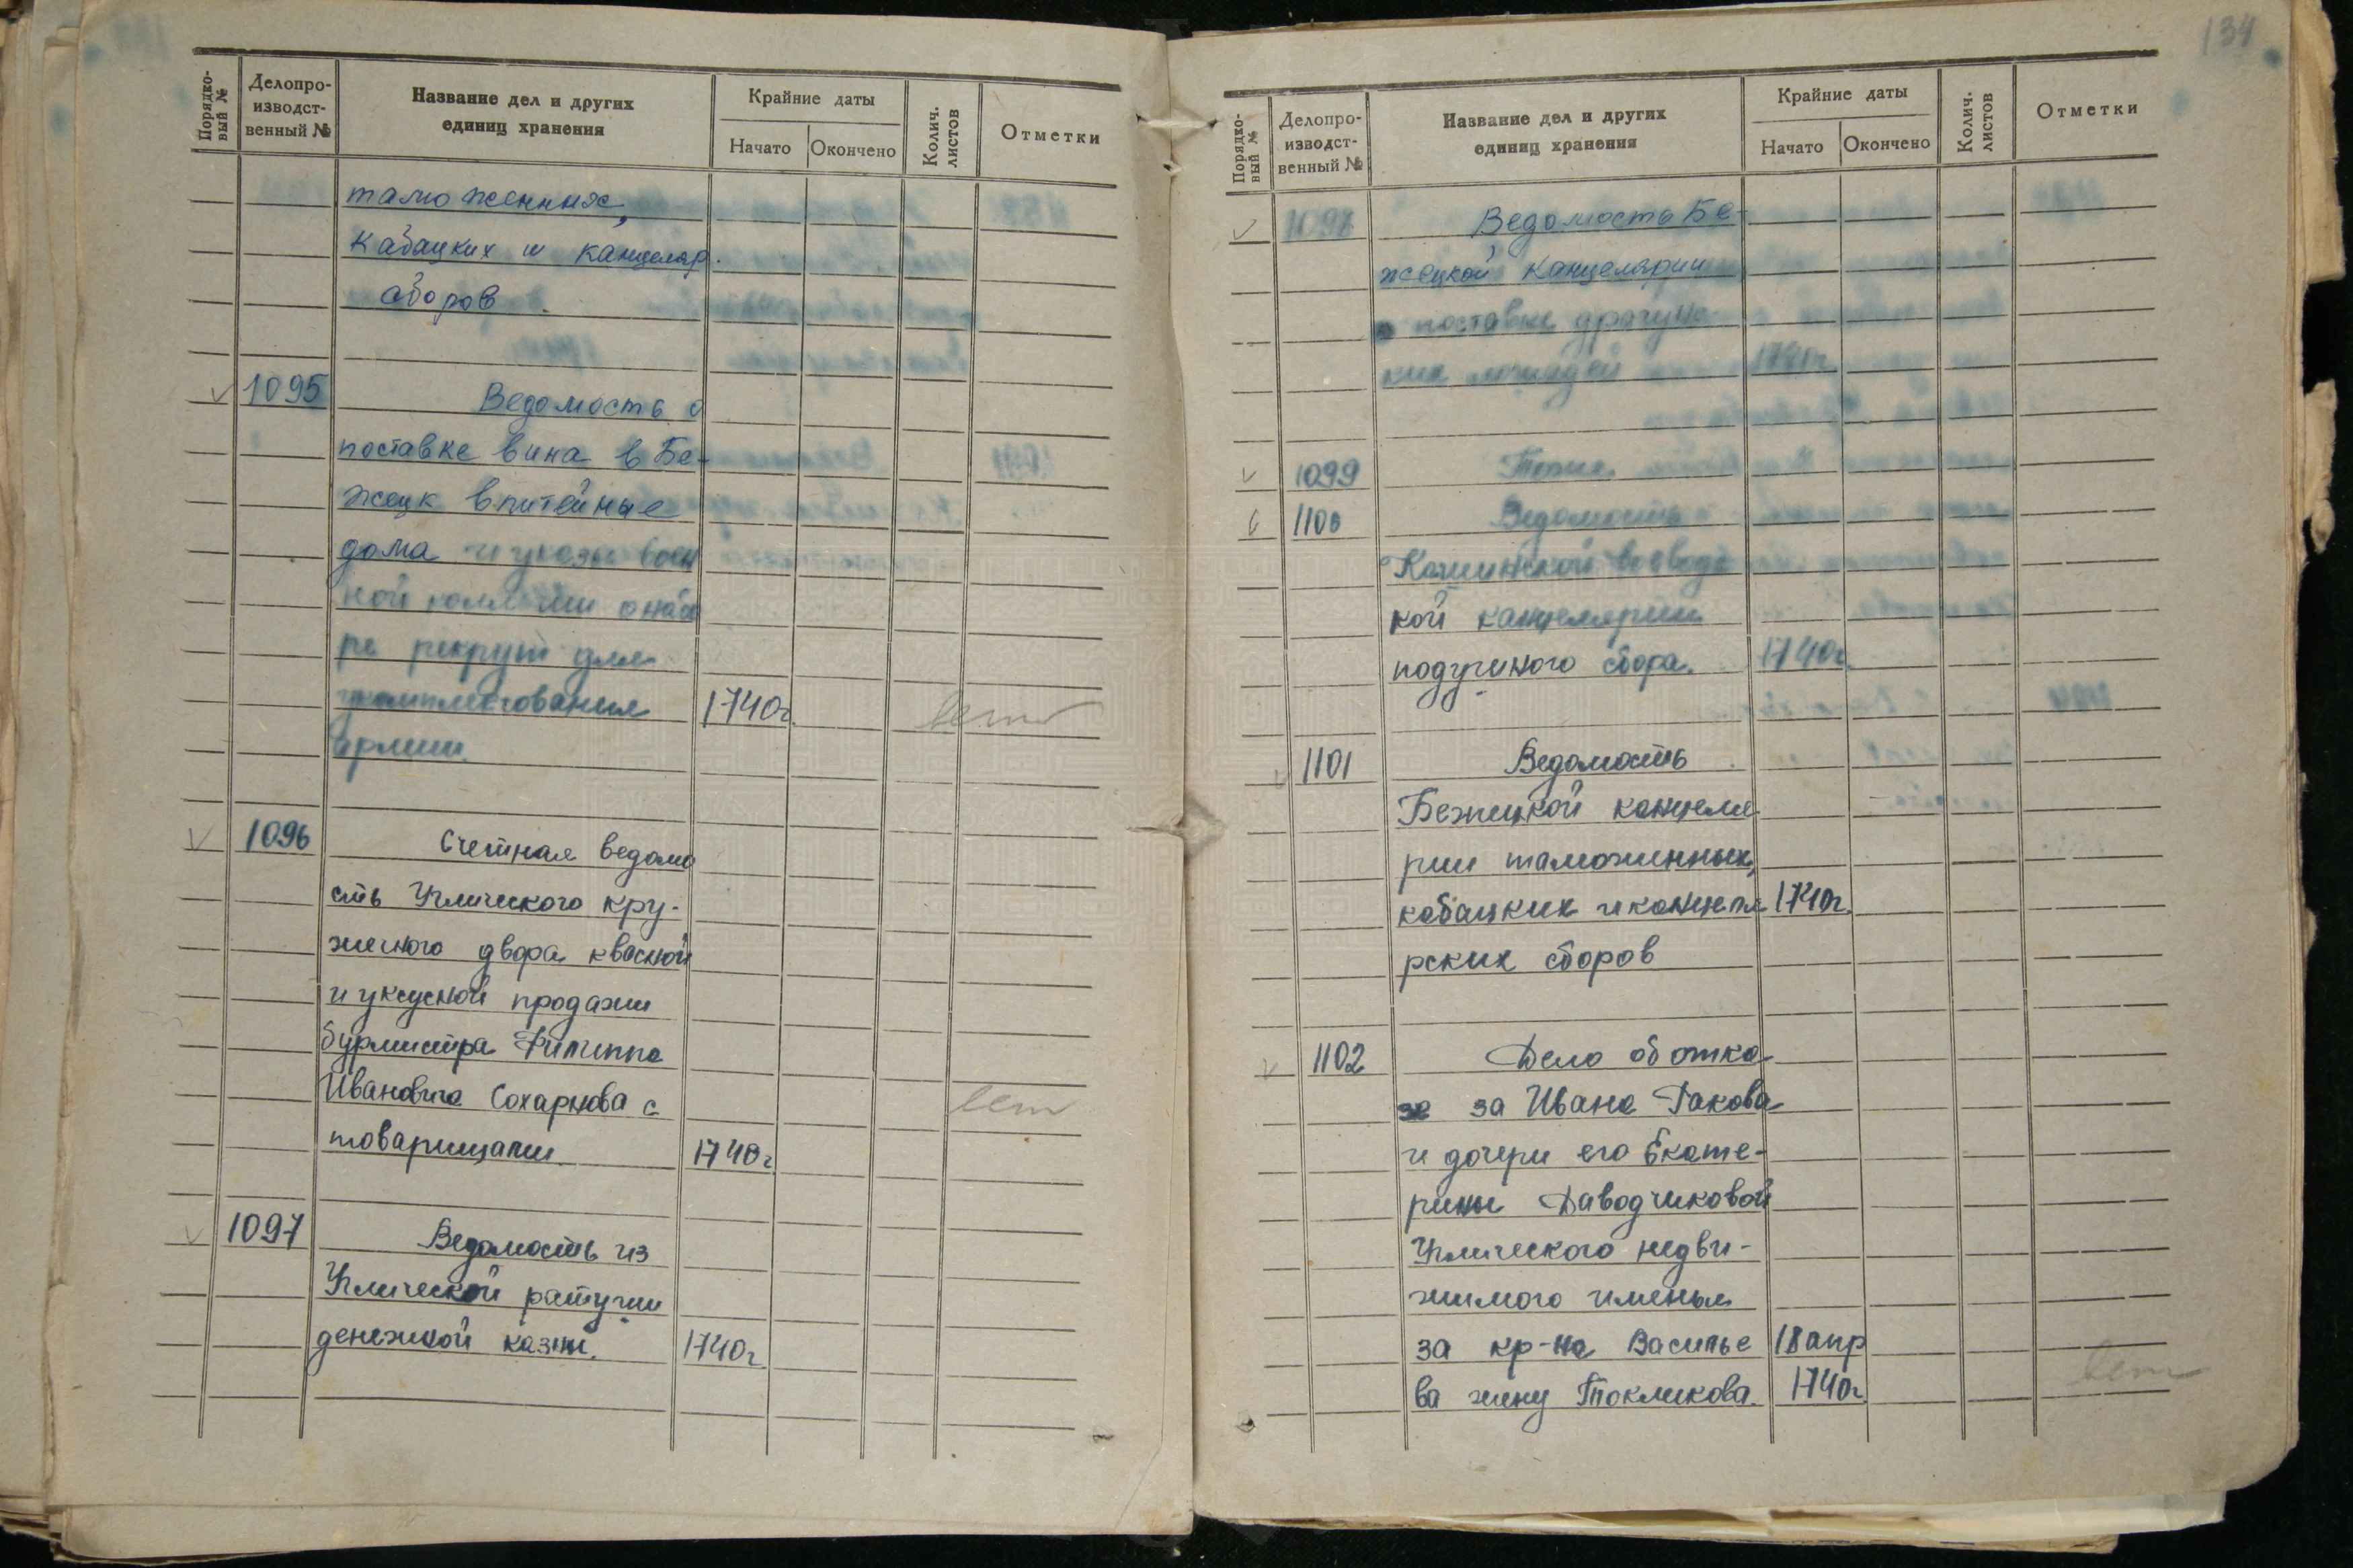 Порядко-
вый №
Делопро-
изводст-
венный №
Название дел и других
единиц хранения
Крайние даты
Начато
Окончено
Колич.
листов
Отметки
таможенных,
кабацких и канцеляр.
сборов
1095
Ведомость о
поставке вина в Бе-
жецк в питейные
дома и указы воен
ной коллегии о набо
ре рекрут для
укомплектования 1740г.
армии.
1096
Счетная ведомо
сть Угличского кру-
жечного двора квасной
и уксусной продажи
бурмистра Филиппа
Ивановича Сохарнова с
товарищами 1740г
1097
Ведомость из
Угличской ратуши
денежной казны. 1740г
134
Порядко-
вый №
Делопро-
изводст-
венный №
Название дел и других
единиц хранения
Крайние даты
Начато
Окончено
Колич.
листов
Отметки
1098
Ведомость Бе-
жецкой канцелярии
о поставке драгунс
ких лошадей 1740г.
1099
Тоже.
1100
Ведомость
Кашинской воеводс
кой канцелярии
подушного сбора. 1740г.
1101
Ведомость
Бежецкой канцеля
рии таможенных,
кабацких и канцеля 1740г.
рских сборов
1102
Дело об отка
зе за Ивана Ракова
и дочери его Екате-
рины Даводчиковой
Угличского недви-
жимого именья
за кр-на Василье 18 апр
ва жену Токликова. 1740г.